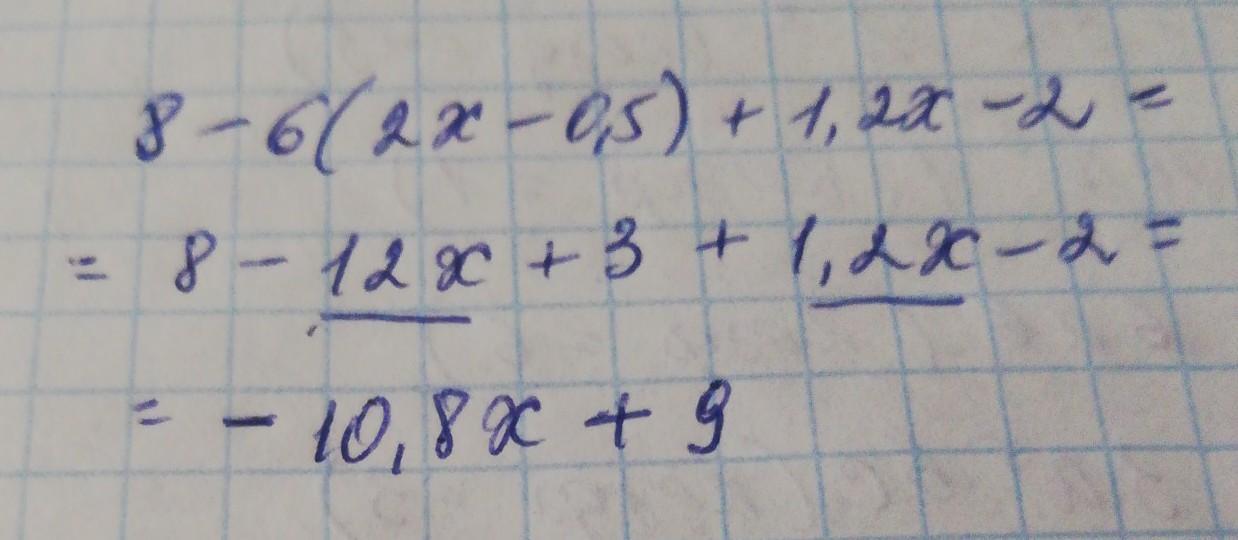 8 - 6(2x - 0,5) + 1,2x - 2 =
= 8 - 12x + 3 + 1,2x - 2 =
= - 10,8x + 9